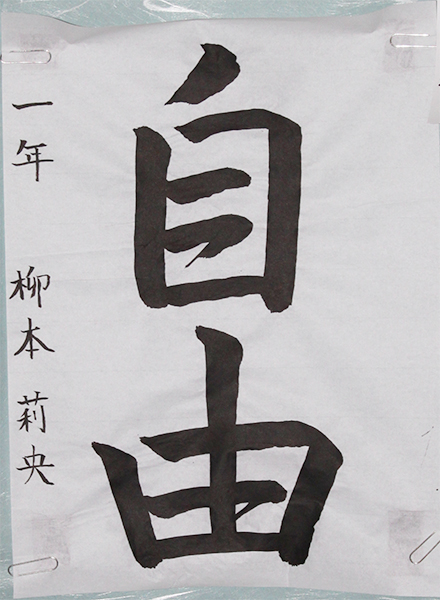 自由
一年 柳本莉央